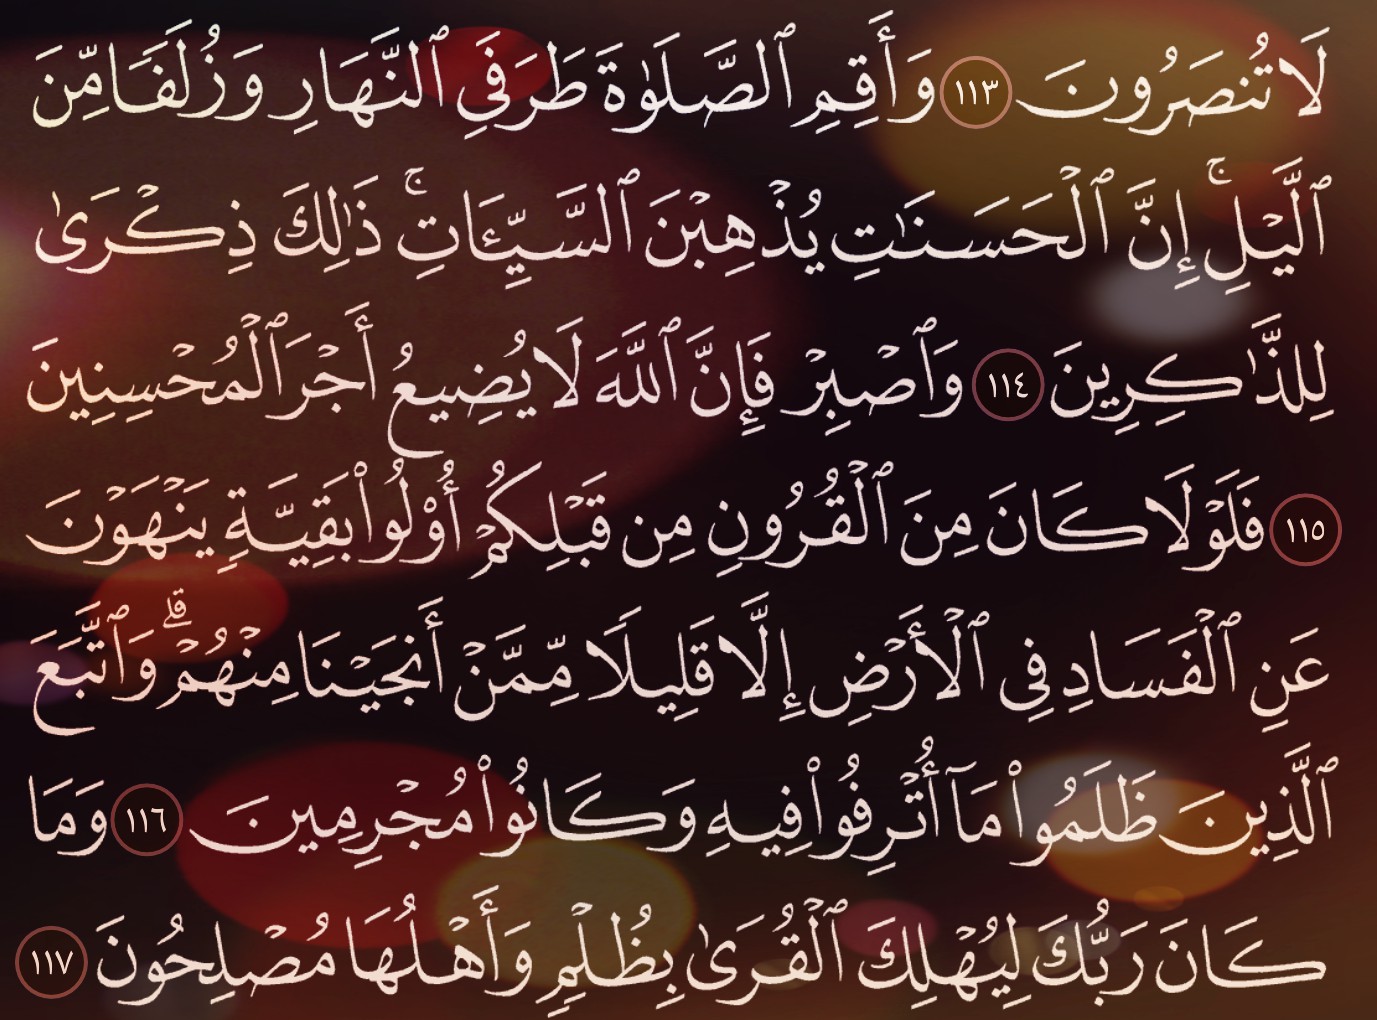 لَا تُنصَرُونَ ١١٣ وَأَقِمِ ٱلصَّلَوٰةَ طَرَفَيِ ٱلنَّهَارِ وَزُلَفًا مِّنَ
ٱلَّيْلِۚ إِنَّ ٱلْحَسَنَٰتِ يُذْهِبْنَ ٱلسَّيِّـَٔاتِۚ ذَٰلِكَ ذِكْرَىٰ
لِلذَّٰكِرِينَ ١١٤ وَٱصْبِرْ فَإِنَّ ٱللَّهَ لَا يُضِيعُ أَجْرَ ٱلْمُحْسِنِينَ
١١٥ فَلَوْلَا كَانَ مِنَ ٱلْقُرُونِ مِن قَبْلِكُمْ أُو۟لُوا۟ بَقِيَّةٍ يَنْهَوْنَ
عَنِ ٱلْفَسَادِ فِى ٱلْأَرْضِ إِلَّا قَلِيلًا مِّمَّنْ أَنجَيْنَا مِنْهُمْۗ وَٱتَّبَعَ
ٱلَّذِينَ ظَلَمُوا۟ مَآ أُتْرِفُوا۟ فِيهِ وَكَانُوا۟ مُجْرِمِينَ ١١٦ وَمَا
كَانَ رَبُّكَ لِيُهْلِكَ ٱلْقُرَىٰ بِظُلْمٍ وَأَهْلُهَا مُصْلِحُونَ ١١٧